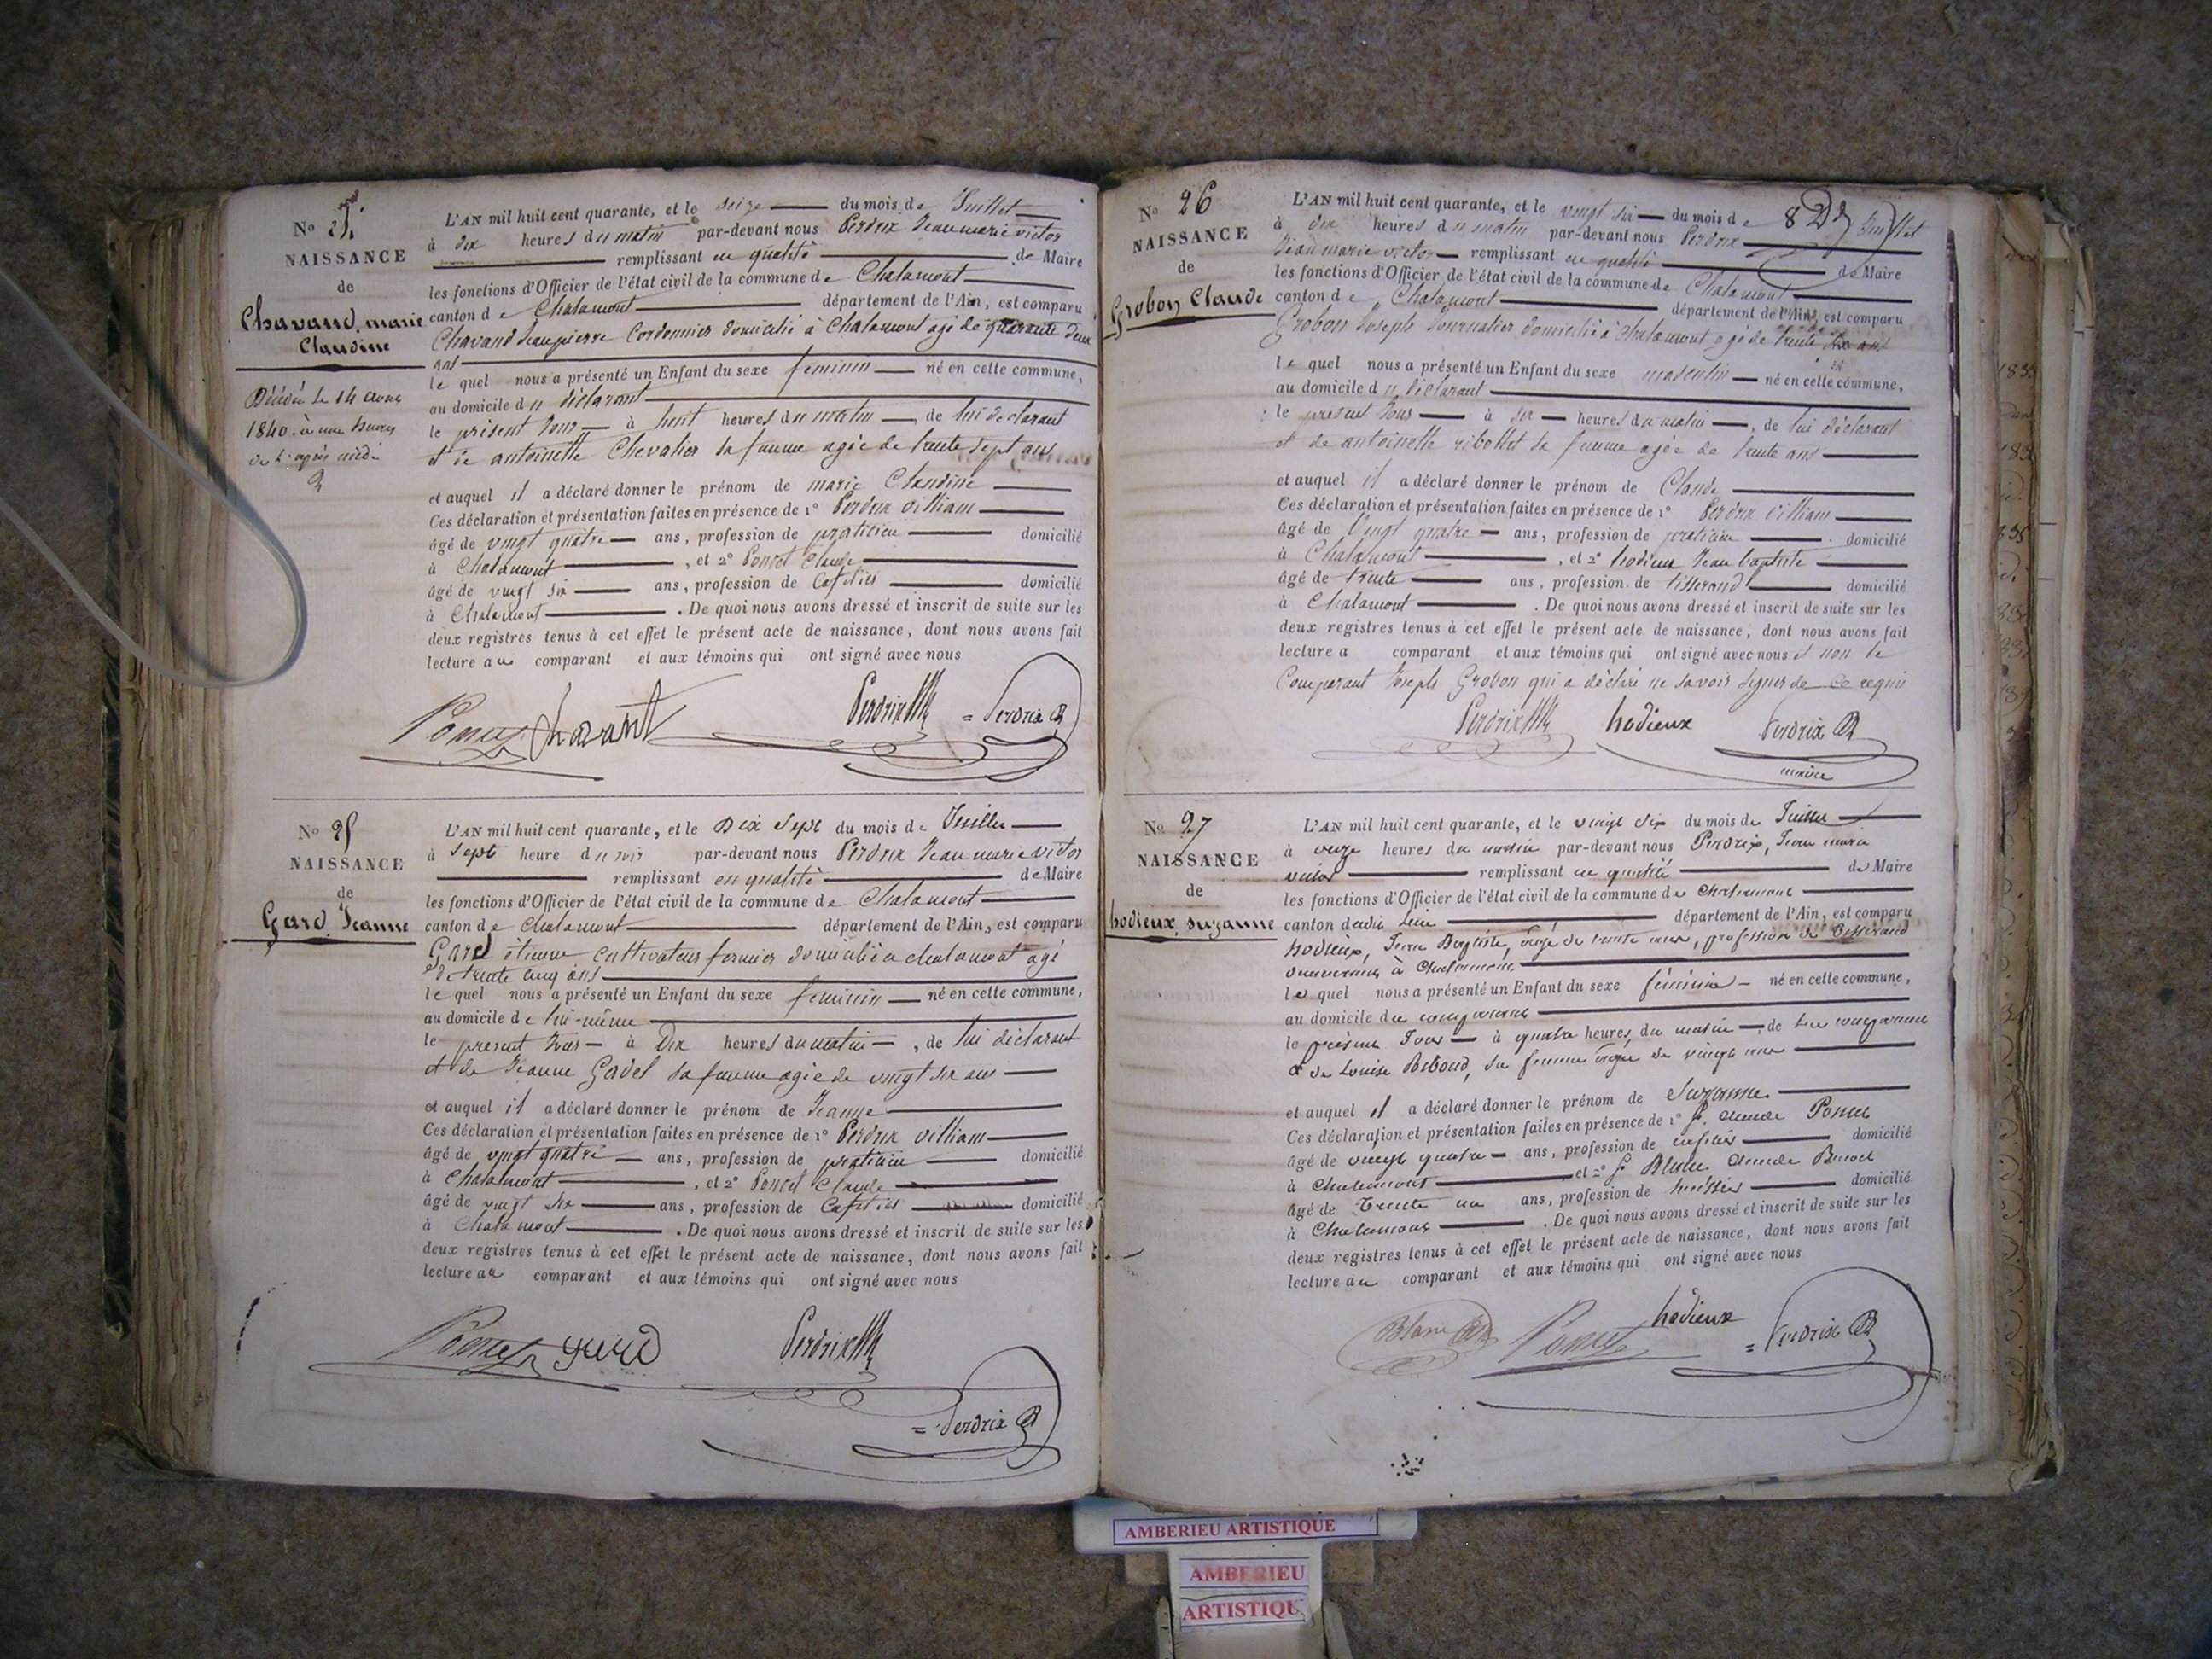 NAISSANCE
de
Chavand, marie
Claudine
Décédée le 14 aout
1840. à une heure
de l'après midi
L'AN mil huit cent quarante, et le seize du mois de Juillet
à dix heures du matin par-devant nous Perdrix Jean marie victor
remplissant en qualité de Maire
les fonctions d'Officier de l'état civil de la commune de Chalamont
canton de Chalamont département de l'Ain, est comparu
Chavand Jean pierre Cordonnier domicilié à Chalamont agé de quarante deux
ans
le quel nous a présenté un Enfant du sexe feminin né en cette commune,
au domicile du déclarant
le présent Jour à huit heures du matin, de lui déclarant
et de antoinette Chevalier sa femme agée de trente sept ans
et auquel il a déclaré donner le prénom de marie Claudine
Ces déclaration et présentation faites en présence de 1° Perdrix villiam
âgé de vingt quatre ans, profession de praticien domicilié
à Chalamont, et 2° Poncet Claude
âgé de vingt six ans, profession de Cafetier domicilié
à Chalamont. De quoi nous avons dressé et inscrit de suite sur les
deux registres tenus à cet effet le présent acte de naissance, dont nous avons fait
lecture au comparant et aux témoins qui ont signé avec nous
Poncet Chavant Perdrix = Perdrix
No 25
NAISSANCE
de
Gard, Jeanne
L'AN mil huit cent quarante, et le Dix sept du mois de Juillet
à sept heure du soir par-devant nous Perdrix Jean marie victor
remplissant en qualité de Maire
les fonctions d'Officier de l'état civil de la commune de Chalamont
canton de Chalamont département de l'Ain, est comparu
Gard étienne cultivateur fermier domicilié a chalamont agé
de trente cinq ans
le quel nous a présenté un Enfant du sexe feminin né en cette commune,
au domicile de lui-même
le present Jour à Dix heures du matin, de lui déclarant
et de Jeanne Gadel sa femme agée de vingt six ans
et auquel il a déclaré donner le prénom de Jeanne
Ces déclaration et présentation faites en présence de 1° Perdrix villiam
âgé de vingt quatre ans, profession de praticien domicilié
à Chalamont, et 2° Poncet Claude
âgé de vingt six ans, profession de Cafetier domicilié
à Chalamont. De quoi nous avons dressé et inscrit de suite sur les
deux registres tenus à cet effet le présent acte de naissance, dont nous avons fait
lecture au comparant et aux témoins qui ont signé avec nous
Poncet gard Perdrix
= Perdrix
No 26
NAISSANCE
de
Grobon Claude
L'AN mil huit cent quarante, et le vingt six du mois de Juillet
à dix heures du matin par-devant nous Perdrix
Jean marie victor remplissant en qualité de Maire
les fonctions d'Officier de l'état civil de la commune de Chalamont
canton de Chalamont département de l'Ain, est comparu
Grobon Joseph Journalier domicilié à Chalamont agé de trente six ans
le quel nous a présenté un Enfant du sexe masculin né en cette commune,
au domicile du déclarant
le present Jour à six heures du matin, de lui déclarant
et de antoinette ribottet sa femme agée de trente ans
et auquel il a déclaré donner le prénom de Claude
Ces déclaration et présentation faites en présence de 1° Perdrix villiam
âgé de vingt quatre ans, profession de praticien domicilié
à Chalamont, et 2° hodieux Jean baptiste
âgé de trente ans, profession de tisserand domicilié
à Chalamont. De quoi nous avons dressé et inscrit de suite sur les
deux registres tenus à cet effet le présent acte de naissance, dont nous avons fait
lecture a comparant et aux témoins qui ont signé avec nous et non le
Comparant Joseph Grobon qui a déclaré ne savoir signer de ce requis
Perdrix hodieux Perdrix
maire
No 27
NAISSANCE
de
hodieux, suzanne
L'AN mil huit cent quarante, et le vingt six du mois de Juillet
à onze heures du matin par-devant nous Perdrix, Jean marie
victor remplissant en qualité de Maire
les fonctions d'Officier de l'état civil de la commune de Chalamont
canton dudit lieu département de l'Ain, est comparu
hodieux, Jean Baptiste, âgé de trente ans, profession de tisserand
demeurant à Chalamont
le quel nous a présenté un Enfant du sexe féminin né en cette commune,
au domicile du comparant
le présent Jour à quatre heures du matin, de lui comparant
et de Louise Riboud, sa femme âgée de vingt ans
et auquel il a déclaré donner le prénom de Suzanne
Ces déclaration et présentation faites en présence de 1° Claude Poncet
âgé de vingt quatre ans, profession de cafetier domicilié
à Chalamont et 2° Blanc Claude Benoit
âgé de trente un ans, profession de huissier domicilié
à Chalamont. De quoi nous avons dressé et inscrit de suite sur les
deux registres tenus à cet effet le présent acte de naissance, dont nous avons fait
lecture au comparant et aux témoins qui ont signé avec nous
Blanc Poncet hodieux = Perdrix
AMBERIEU ARTISTIQUE
AMBERIEU
ARTISTIQUE